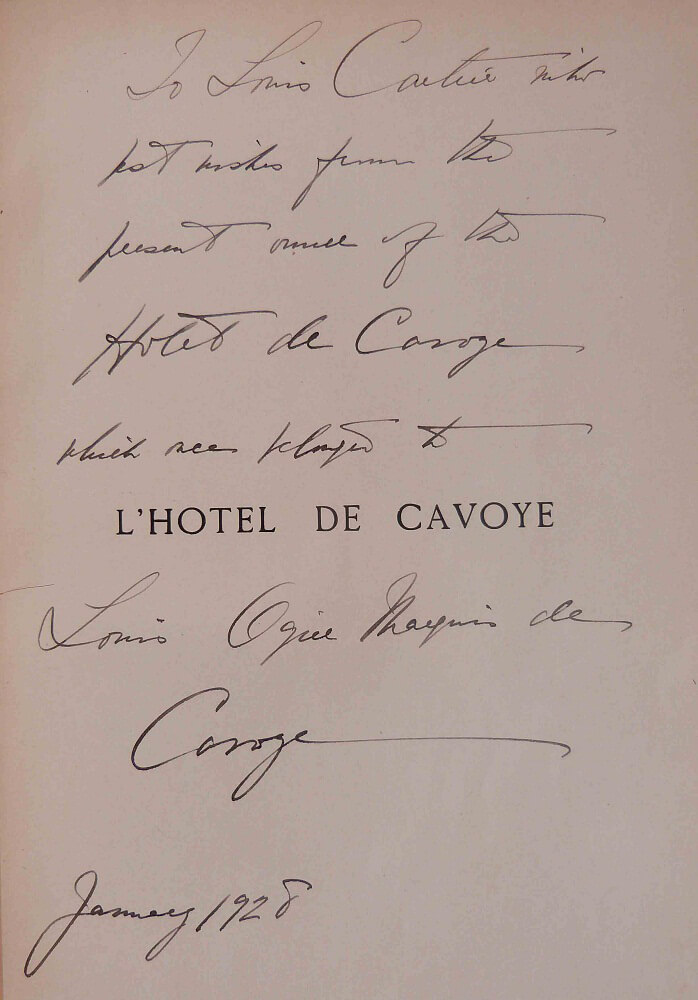 To Louis Cartier with
best wishes from the
present owner of the
Hotel de Cavoye
which once belonged to
L'HOTEL DE CAVOYE
Louis Ogier Marquis de
Cavoye
January 1928